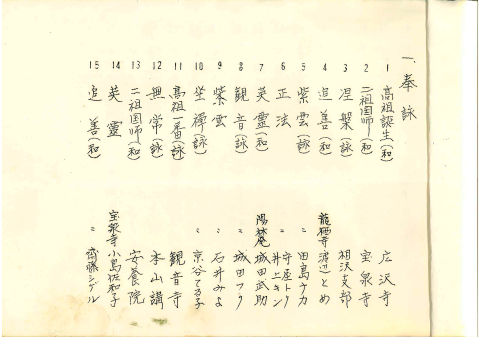 一、奉詠
1 高祖誕生(和) 広沢寺
2 二祖国師(和) 宝泉寺
3 涅槃(詠) 相沢支部
4 追善(和) 龍栖寺 渡辺とめ
5 紫雲(詠) 〃 田島ナカ
6 正法 〃 守屋トク 井上キン
7 英霊(和) 陽林庵 城田武助
8 観音(詠) 〃 城田フク
9 紫雲 〃 石井みよ
10 坐禅(詠) 〃 京谷てる子
11 高祖一番(詠) 観音寺
12 無常(詠) 本山講
13 二祖国師(和) 安養院
14 英霊 宝泉寺 小島佐和子
15 追善(和) 〃 齋藤シゲル